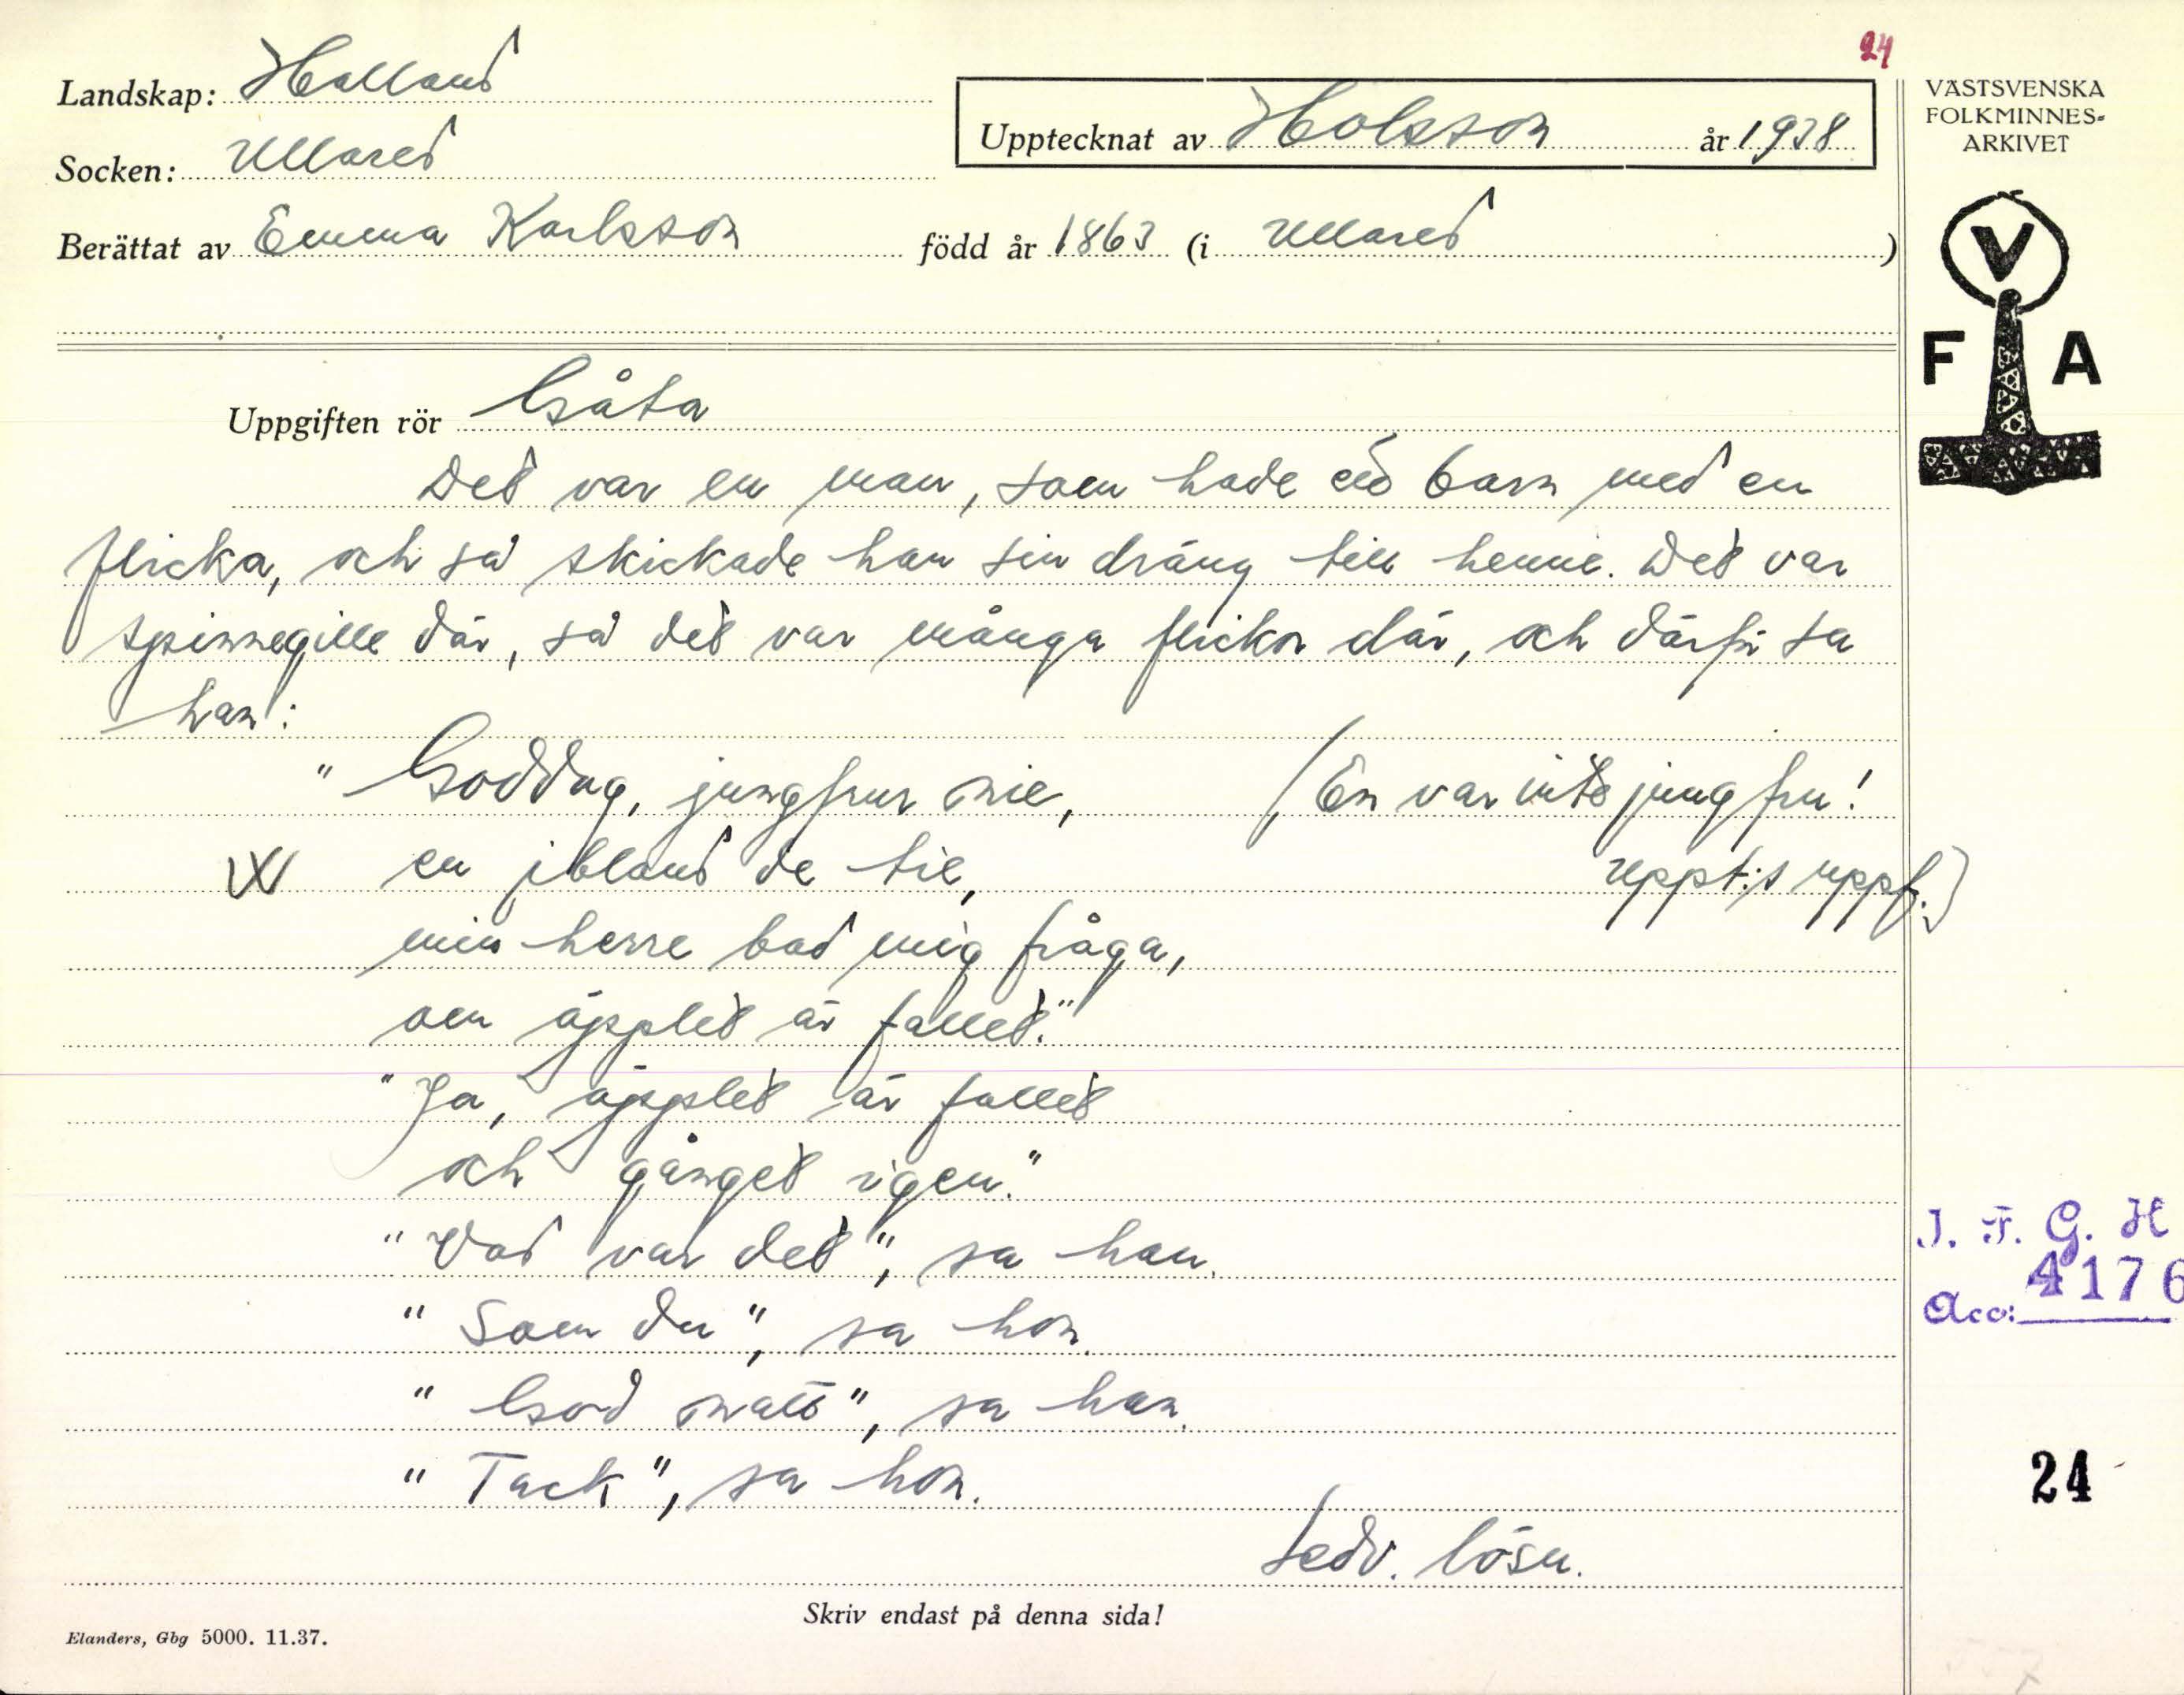 24
Landskap: Halland
Upptecknat av Holsson år 1938
VÄSTSVENSKA
FOLKMINNES-
ARKIVET
Socken: Ullared
Berättat av Emma Karlsson född år 1863 (i Ullared )
V
F A
Uppgiften rör Gåta
Det var en man, som hade ett barn med en
flicka, och så skickade han sin dräng till henne. Det var
spinnegille där, så det var många flickor där, och därför sa
han:
"Goddag, jungfrur nie, (En var inte jungfru!
W en ibland de tie, Uppt:s uppf.)
min herre bad mig fråga,
om äpplet är fallet."
"Ja, äpplet är fallet
och gånget igen."
"Vad var det", sa han.
"Som du", sa hon.
"God natt", sa han.
"Tack", sa hon.
Sedv. lösn.
I. F. G. H
Acc: 4176
24
Skriv endast på denna sida!
Elanders, Gbg 5000. 11.37.